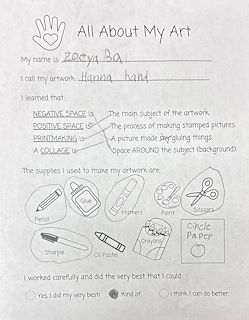 All About My Art
My name is Zoeya Ba
I call my artwork Hanna hand
I learned that:
NEGATIVE SPACE is The main subject of the artwork.
POSITIVE SPACE is The process of making stamped pictures.
PRINTMAKING is A picture made by gluing things.
A COLLAGE is Space AROUND the subject (background).
The supplies I used to make my artwork are:
Pencil Glue Markers Paint Scissors
Sharpie Oil Pastel Crayons Circle Paper
I worked carefully and did the very best that I could:
Yes, I did my very best! Kind of. I think I can do better.